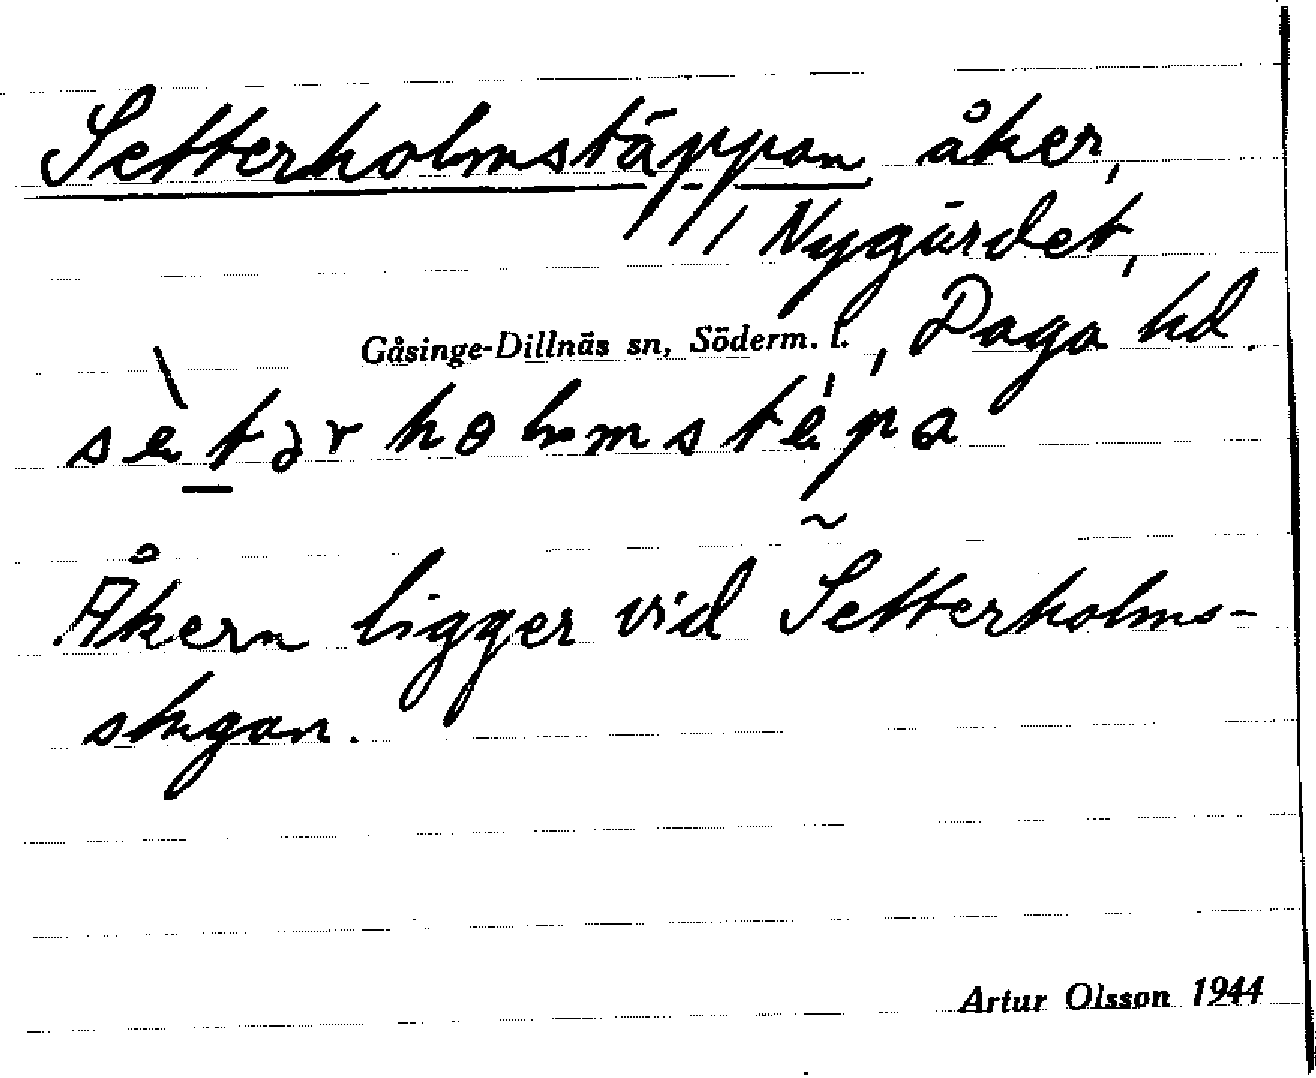 Setterholmstäppan åker,
Nygärdet,
Gåsinge-Dillnäs sn, Söderm. l., Daga hd.
sètərhɵlmstépa
Åkern ligger vid Setterholms-
stugan.
Artur Olsson 1944